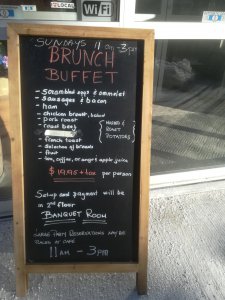 LOCAL
WiFi
SUNDAYS 11 am - 3pm
BRUNCH
BUFFET
- scrambled eggs & ommelet
- sausages & bacon
- ham
- chicken breast, baked
- pork roast
- roast beef
MASHED &
ROAST
POTATOES
- french toast
- selection of breads
- fruit
- tea, coffee, or orange & apple juice
$ 19.95 + tax per person
Setup and payment will be
in 2nd floor
BANQUET ROOM
LARGE PARTY RESERVATIONS MAY BE
11AM - 3PM